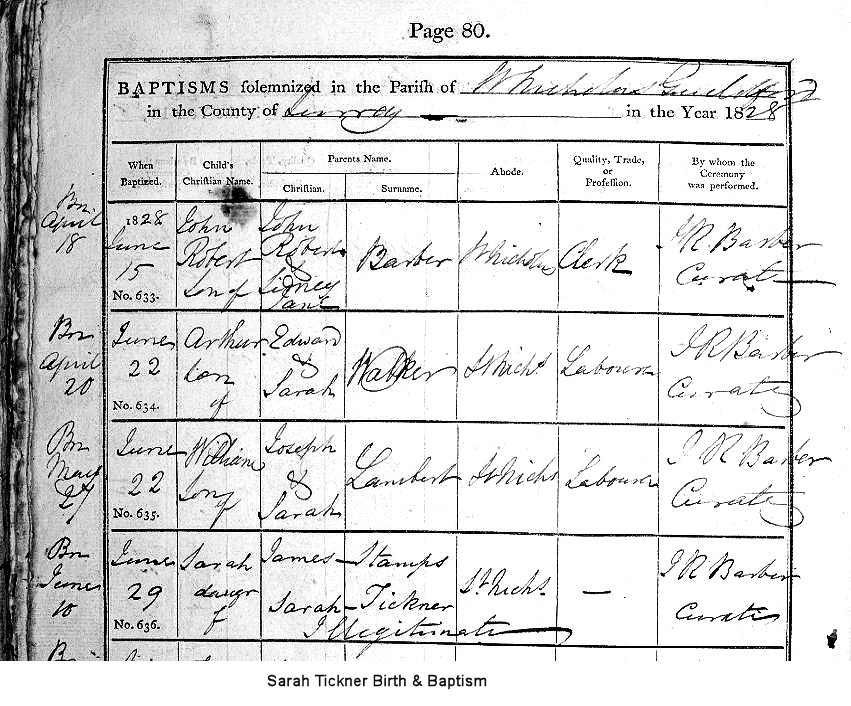 Page 80.
BAPTISMS solemnized in the Parish of St Nicholas Guildford
in the County of Surrey in the Year 1828
When Baptized. Child's Christian Name. Parents Name. Christian. Surname. Abode. Quality, Trade, or Profession. By whom the Ceremony was performed.
Bn April 18
1828 June 15 No. 633. John Robert son of John Robert & Sidney Jane Barber St Nicholas Clerk J R Barber Curate
Bn April 20
June 22 No. 634. Arthur son of Edward & Sarah Walker St Nichs Labourer J R Barber Curate
Bn May 27
June 22 No. 635. William son of Joseph & Sarah Lambert St Nichs Labourer J R Barber Curate
Bn June 10
June 29 No. 636. Sarah daugr of James Stamps Sarah Tickner Illegitimate St Nichs J R Barber Curate
Sarah Tickner Birth & Baptism